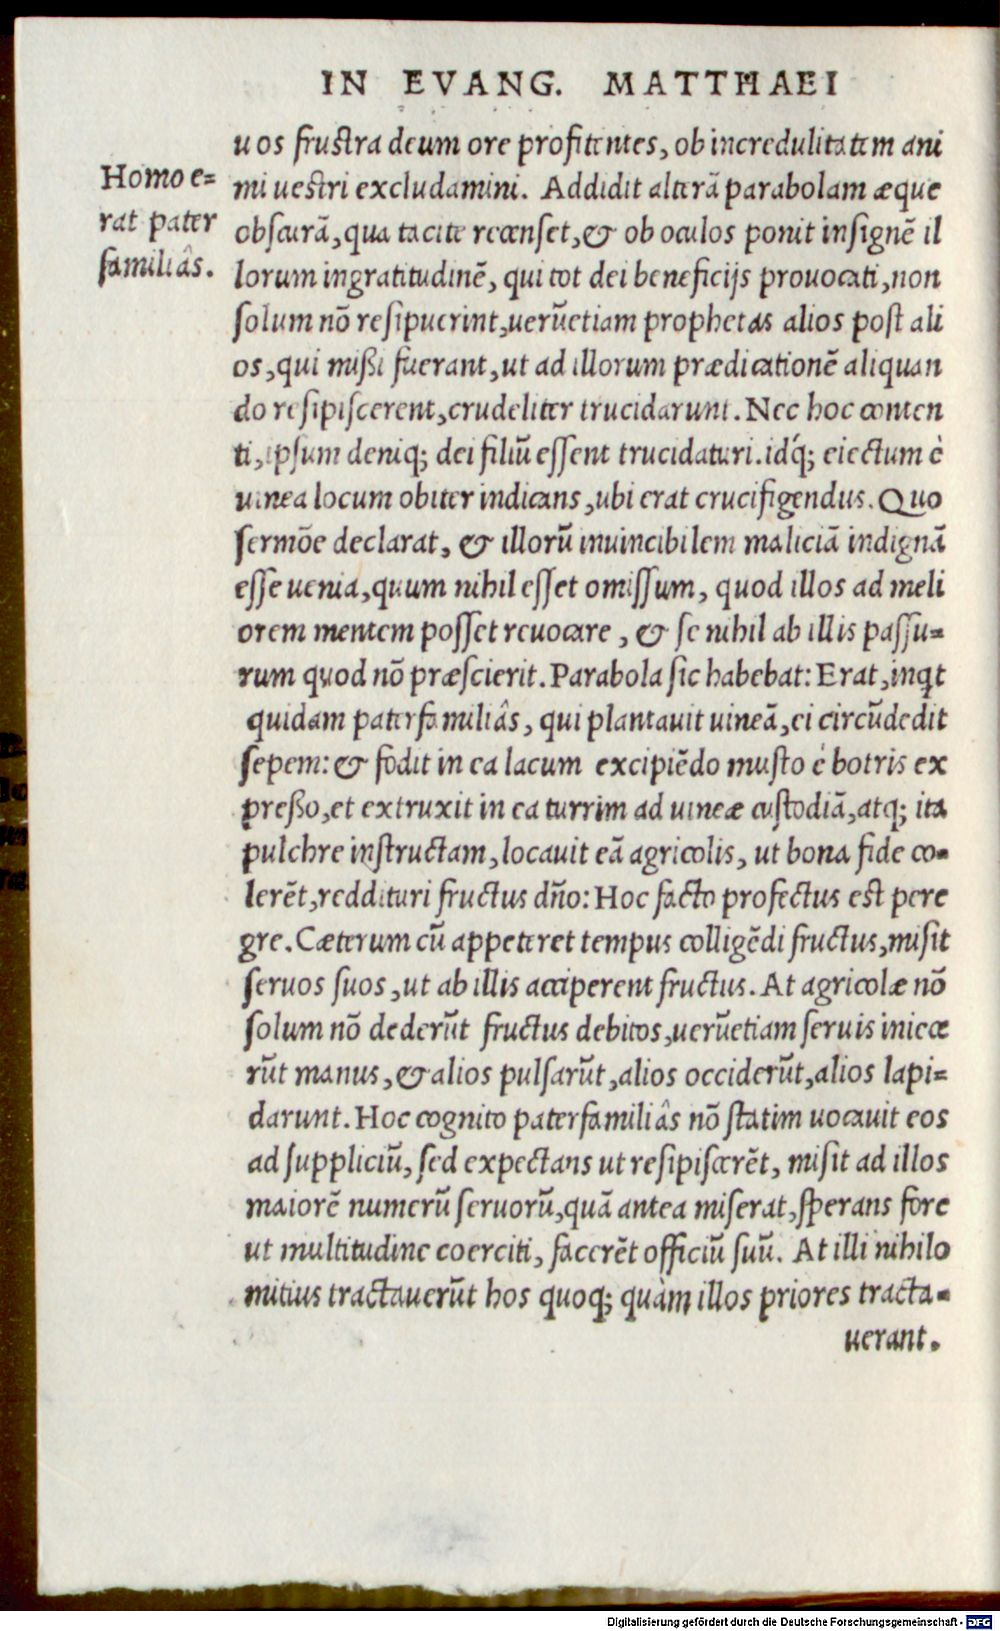 IN EVANG. MATTHAEI
uos frustra deum ore profitentes, ob incredulitatem ani
Homo e=
rat pater
familiâs.
mi uestri excludamini. Addidit alterã parabolam æque
obscurã, qua tacite recenset, & ob oculos ponit insignẽ il
lorum ingratitudinẽ, qui tot dei beneficijs prouocati, non
solum nõ resipuerint, uerũetiam prophetas alios post ali
os, qui mißi fuerant, ut ad illorum prædicationẽ aliquan
do resipiscerent, crudeliter trucidarunt. Nec hoc conten
ti, ipsum deniq; dei filiũ essent trucidaturi. idq́; eiectum è
uinea locum obiter indicans, ubi erat crucifigendus. Quo
sermõe declarat, & illorũ inuincibilem maliciã indignã
esse uenia, quum nihil esset omissum, quod illos ad meli
orem mentem posset reuocare, & se nihil ab illis passu=
rum quod nõ præscierit. Parabola sic habebat: Erat, inqt
quidam paterfamiliâs, qui plantauit uineã, ei circũdedit
sepem: & fodit in ea lacum excipiẽdo musto è botris ex
preßo, et extruxit in ea turrim ad uineæ custodiã, atq; ita
pulchre instructam, locauit eã agricolis, ut bona fide co=
lerẽt, reddituri fructus dño: Hoc facto profectus est pere
gre. Cæterum cũ appeteret tempus colligẽdi fructus, misit
seruos suos, ut ab illis acciperent fructus. At agricolæ nõ
solum nõ dederũt fructus debitos, uerũetiam seruis iniece
rũt manus, & alios pulsarũt, alios occiderũt, alios lapi=
darunt. Hoc cognito paterfamiliâs nõ statim uocauit eos
ad suppliciũ, sed expectans ut resipiscerẽt, misit ad illos
maiorẽ numerũ seruorũ, quã antea miserat, sperans fore
ut multitudine coerciti, facerẽt officiũ suũ. At illi nihilo
mitius tractauerũt hos quoq; quàm illos priores tracta=
uerant.
Digitalisierung gefördert durch die Deutsche Forschungsgemeinschaft - DFG